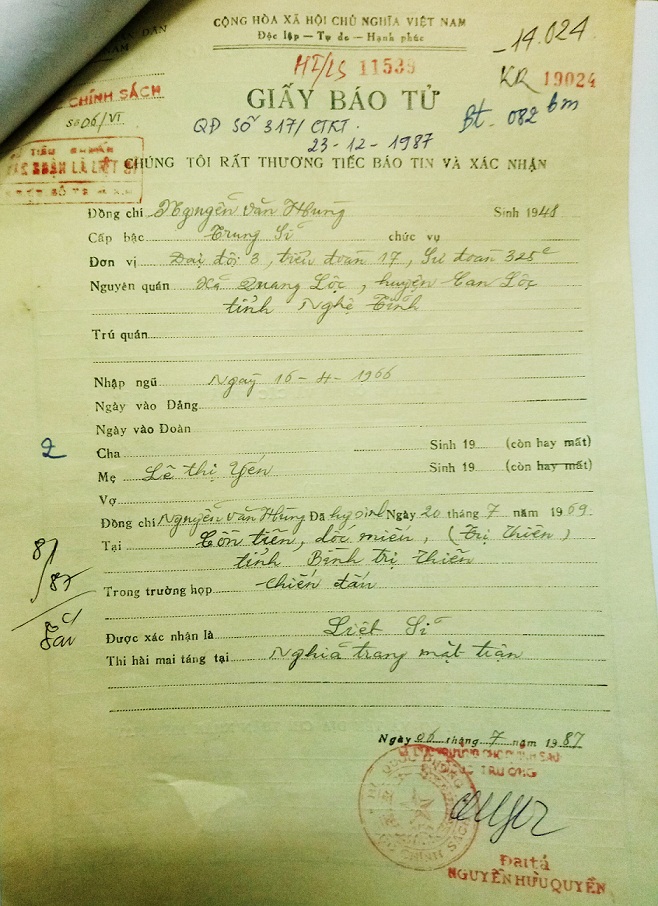 CỘNG HÒA XÃ HỘI CHỦ NGHĨA VIỆT NAM
Độc lập — Tự do — Hạnh phúc
14.024
HT/LS 11539
KR 19024
CHÍNH SÁCH
Số 06/VI
GIẤY BÁO TỬ
Bt. 082 bm
QĐ Số 317/CTKT.
23-12-1987
CHÚNG TÔI RẤT THƯƠNG TIẾC BÁO TIN VÀ XÁC NHẬN
Đồng chí Nguyễn Văn Hùng Sinh 1948
Cấp bậc Trung Sĩ chức vụ
Đơn vị Đại đội 3, tiểu đoàn 17, Sư đoàn 325c
Nguyên quán Xã Quang Lộc, huyện Can Lộc
tỉnh Nghệ Tĩnh
Trú quán
Nhập ngũ Ngày 16-4-1966
Ngày vào Đảng
Ngày vào Đoàn
2
Cha Sinh 19 (còn hay mất)
Mẹ Lê thị Yến Sinh 19 (còn hay mất)
Vợ
Đồng chí Nguyễn Văn Hùng Đã hy sinh Ngày 20 tháng 7 năm 1969
Tại Cồn tiên, dốc miếu, (Trị Thiên)
tỉnh Bình trị thiên
87/87
Trong trường hợp chiến đấu
Được xác nhận là Liệt Sĩ
Thi hài mai táng tại Nghĩa trang mặt trận
Ngày 06 tháng 7 năm 1987
Đại tá
NGUYỄN HỮU QUYỀN